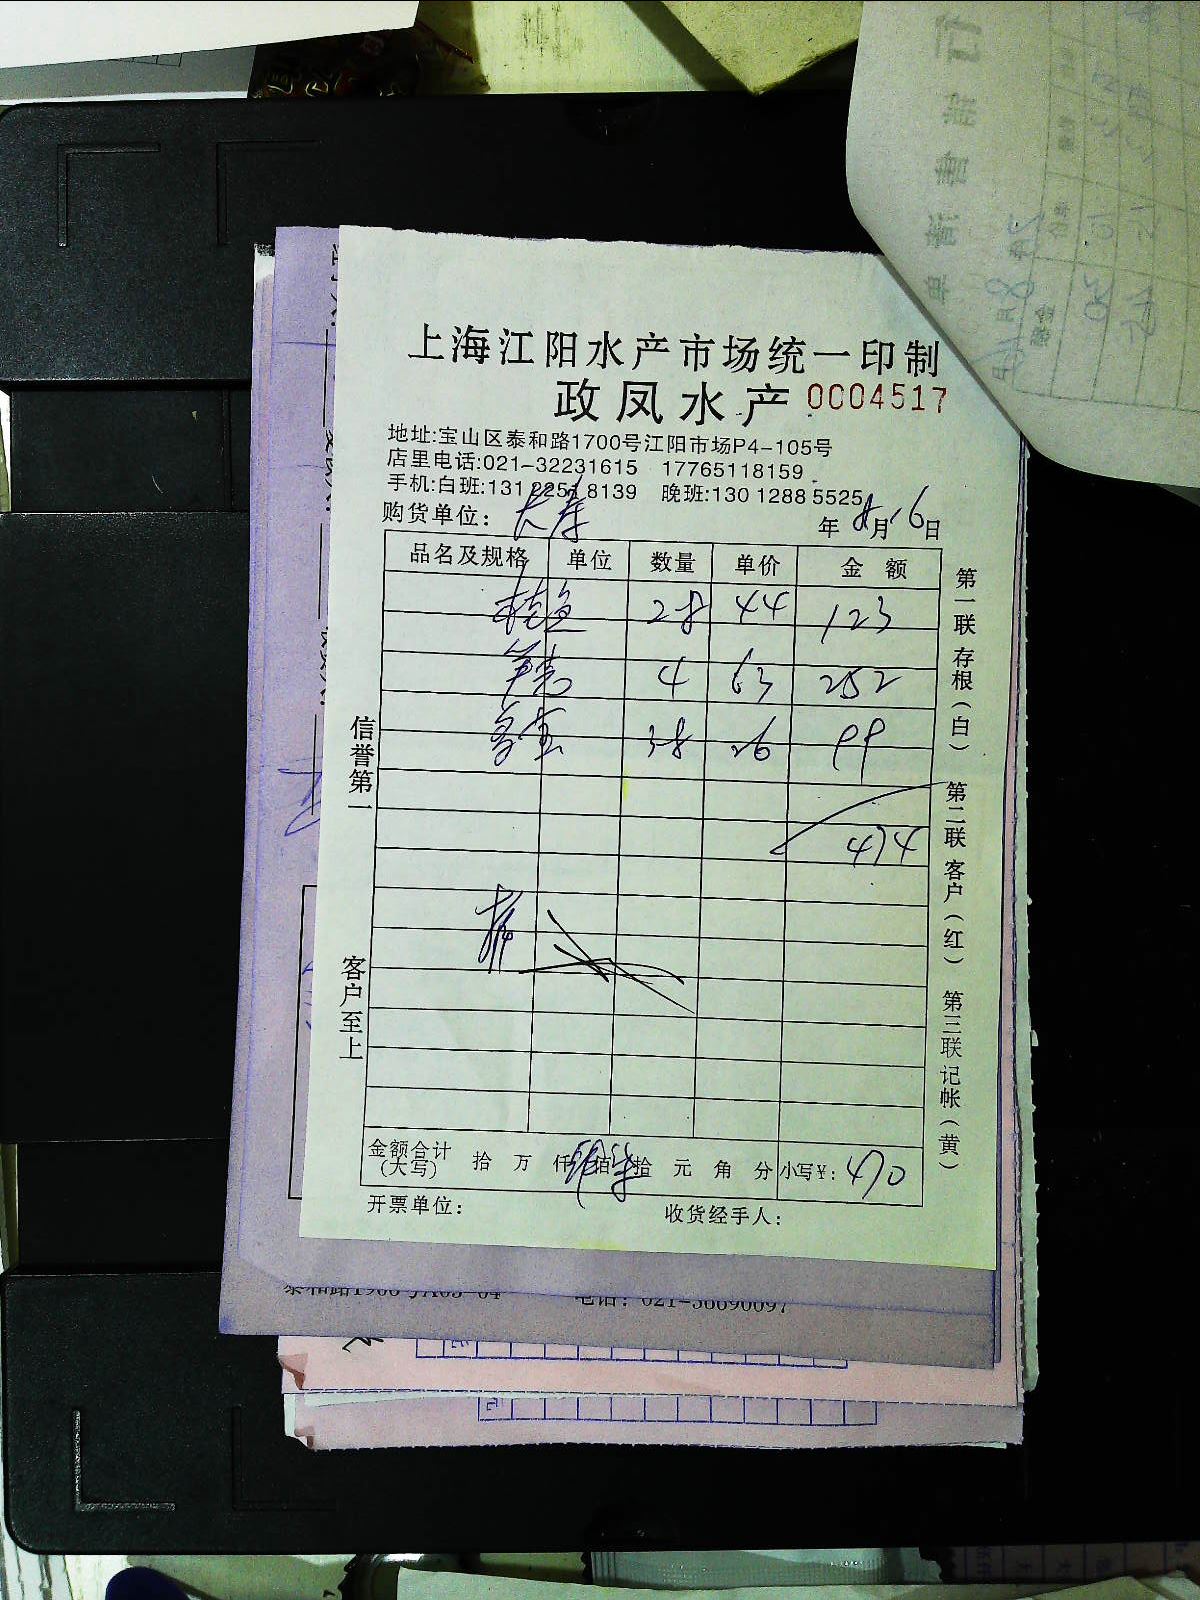 上海江阳水产市场统一印制
政凤水产 0004517
地址:宝山区泰和路1700号江阳市场P4-105号
店里电话:021-32231615 17765118159
手机:白班:131 2251 8139 晚班:130 1288 5525
购货单位: 长寿 年 8月16日
品名及规格 单位 数量 单价 金额
桂鱼 28 44 123
4 63 252
多宝 38 26 99
474
金额合计(大写) 拾 万 仟 佰 拾 元 角 分 小写¥: 470
开票单位: 收货经手人:
信誉第一
客户至上
第一联 存根(白)
第二联 客户(红)
第三联 记帐(黄)
电话: 021-36690097